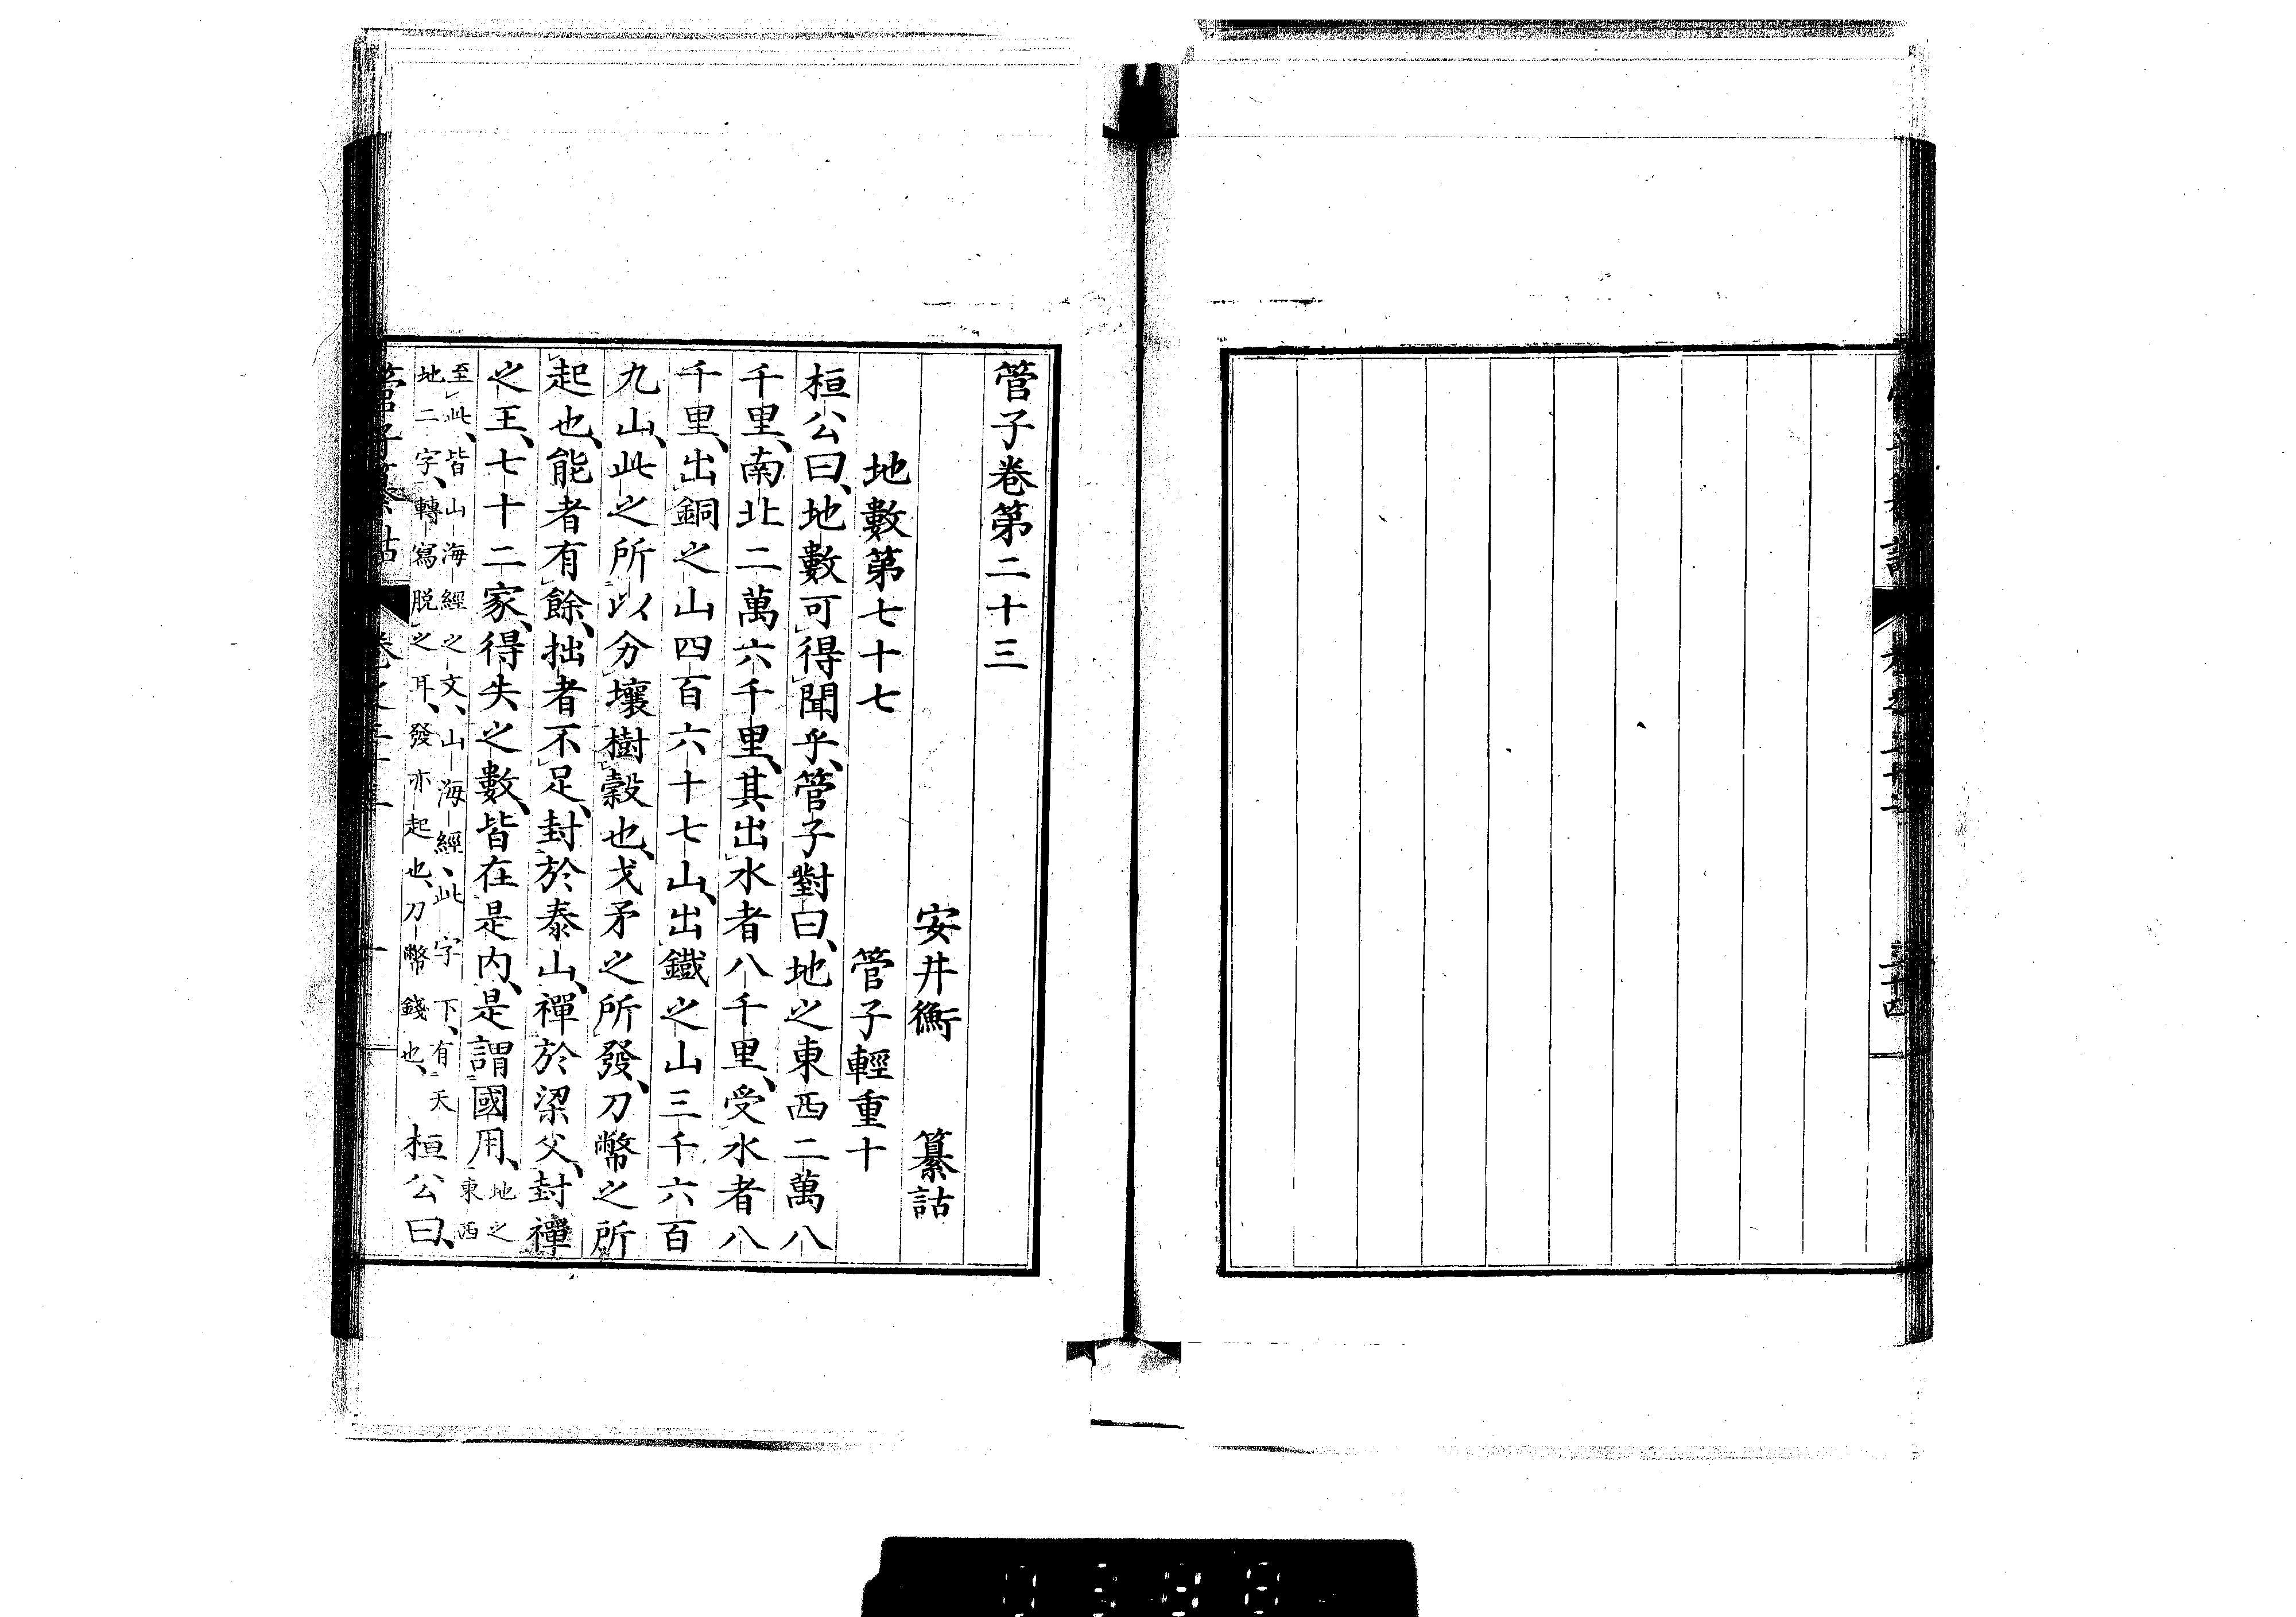 管子卷第二十三
安井衡 纂詁
地數第七十七 管子輕重十
桓公曰、地數可得聞乎、管子對曰、地之東西二萬八
千里、南北二萬六千里、其出水者八千里、受水者八
千里、出銅之山四百六十七山、出鐵之山三千六百
九山、此之所以分壤樹穀也、戈矛之所發、刀幣之所
起也、能者有餘、拙者不足、封於泰山、禪於梁父、封禪
之王、七十二家、得失之數、皆在是內、是謂國用、
地之
東西
至此、皆山海經之文、山海經、此字下、有天
地二字、轉寫脫之耳、發亦起也、刀幣錢也、
桓公曰、